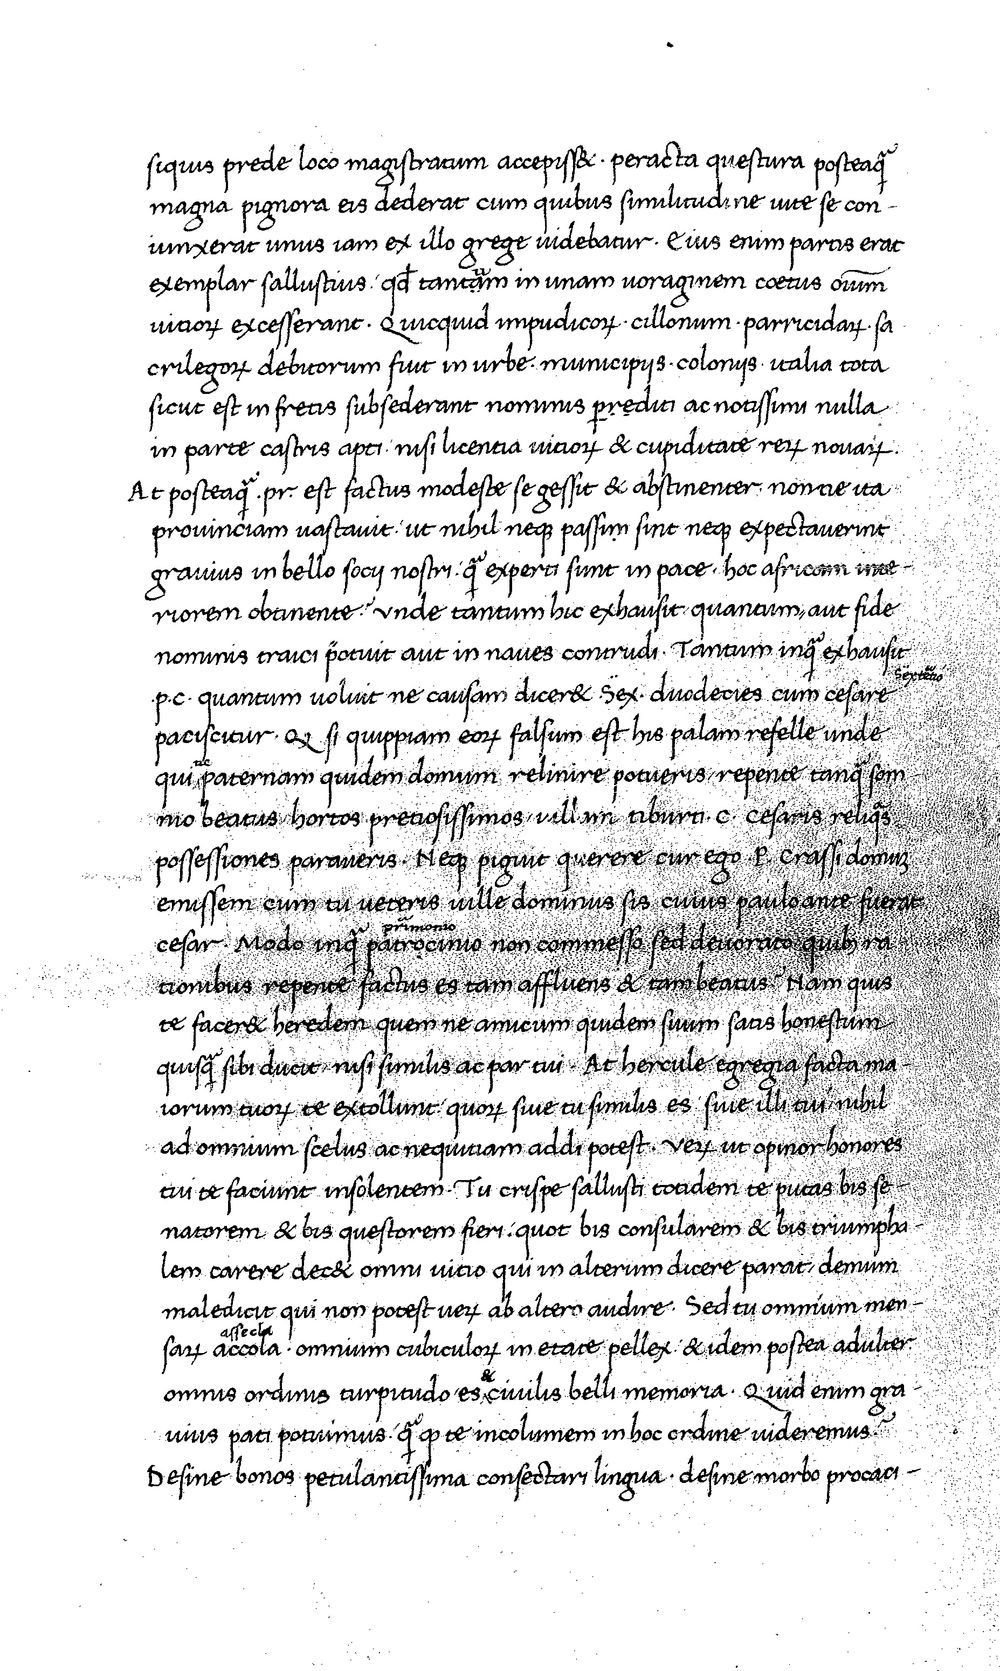 siquis prede loco magistratum accepiss& · peracta questura posteaq̃
magna pignora eis dederat cum quibus similitudine uite se con-
iunxerat unus iam ex illo grege uidebatur · Eius enim partis erat
exemplar sallustius · qđ tantq̃m in unam uoraginem coetus oium̄
uitioꝝ excesserant · Quicquid impudicoꝝ · cillonum · parricidaꝝ · sa
crilegoꝝ debitorum fuit in urbe · municipijs · colonijs · italia tota
sicut est in fretis subsederant nominis p̱rediti ac notissimi nulla
in parte castris apti · nisi licentia uitioꝝ & cupiditate reꝝ nouaꝝ ·
At posteaq̃ · pr · est factus modeste se gessit & abstinenter · non ne ita
prouinciam uastauit · ut nihil neqꝫ passim sint neqꝫ expectauerint
grauius in bello socij nostri · q̃ experti sunt in pace · hoc africam inte-
riorem obtinente · Vnde tantum hic exhausit quantum, aut fide
nominis traici p̃otuit aut in naues contrudi · Tantum inq̃ exhausit
· p · c · quantum uoluit ne causam dicer& Sex · duodecies cum cesare
Sexte͂tio
paciscitur · Qꝫ si quippiam eoꝝ falsum est his palam refelle unde
qui paternam quidem domum relinire potueris, repente tanq̃ som
nio beatus hortos preciosissimos uillam tiburti · C · Cesaris reliq̃s
possessiones paraueris · Neqꝫ piguit querere cur ego P · Crassi domũ
emissem cum tu ueteris uille dominus sis cuius paulo ante fuerat
cesar · Modo inq̃ patrocinio non commesso sed deuorato quibꝫ ra
tionibus repente factus es tam affluens & tam beatus · Nam quis
te facer& heredem quem ne amicum quidem suum satis honestum
quisq̃ sibi ducit nisi similis ac par tui · At hercule egregia facta ma-
iorum tuoꝝ te extollunt quoꝝ siue tu similis es siue illi tui nihil
ad omnium scelus ac nequitiam addi potest · Veꝝ ut opinor honores
tui te faciunt insolentem · Tu crispe sallusti totidem te putas bis se-
natorem & bis questorem fieri · quot bis consularem & bis triumpha-
lem carere dec& omni uitio qui in alterum dicere parat, demum
maledicit qui non potest ueꝝ ab altero audire · Sed tu omnium men-
assecla
saꝝ accola · omnium cubiculoꝝ in etate pellex · & idem postea adulter
omnis ordinis turpitudo es & ciuilis belli memoria · Quid enim gra-
uius pati potuimus · q̃ qꝫ te incolumem in hoc ordine uideremus ·
Desine bonos petulantissima consectari lingua · desine morbo procaci-